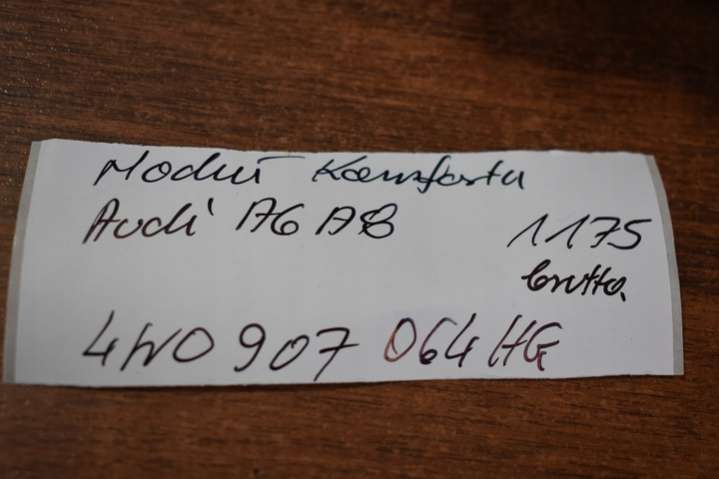 Moduł Komfortu
Audi A6 A8
1175
brutto.
4N0 907 064 HG